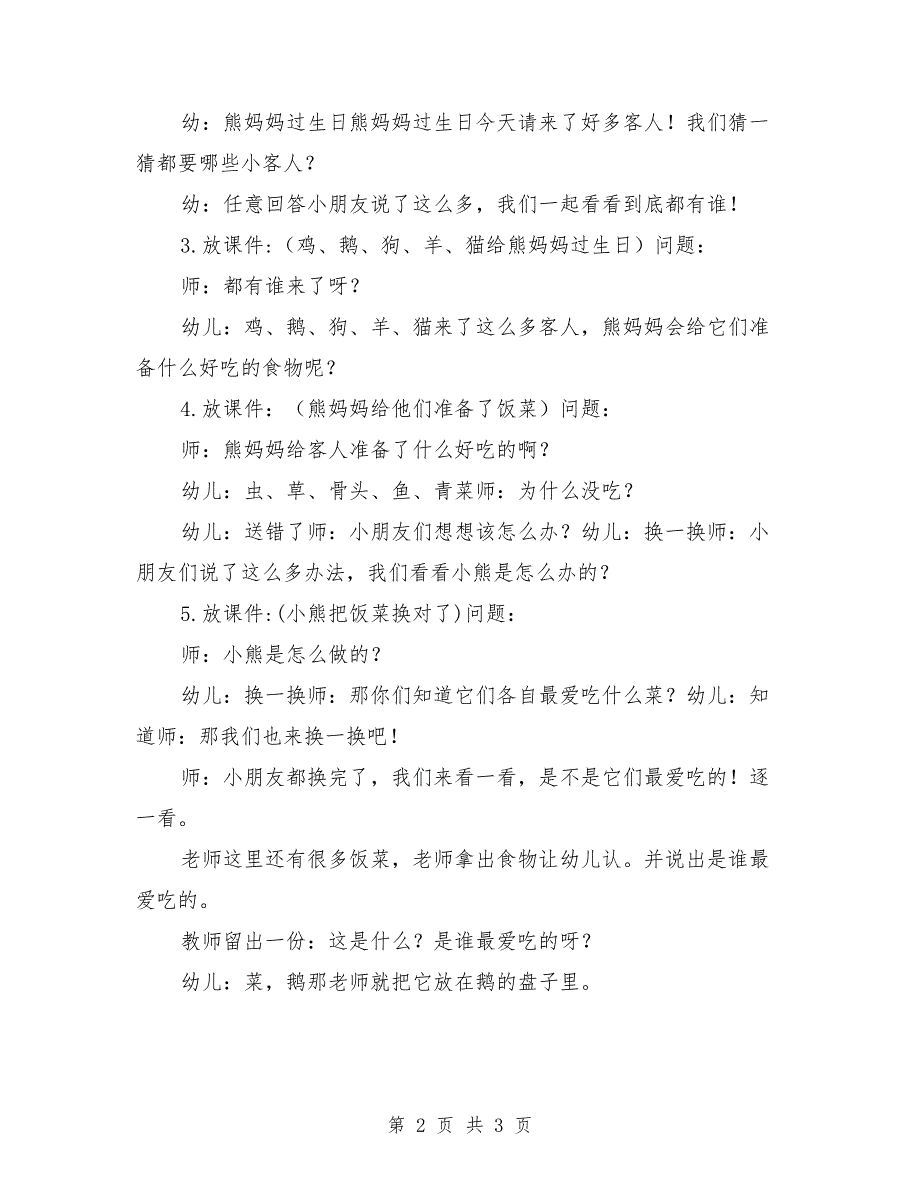 幼：熊妈妈过生日熊妈妈过生日今天请来了好多客人！我们猜一
猜都要哪些小客人？
幼：任意回答小朋友说了这么多，我们一起看看到底都有谁！
3.放课件:（鸡、鹅、狗、羊、猫给熊妈妈过生日）问题：
师：都有谁来了呀？
幼儿：鸡、鹅、狗、羊、猫来了这么多客人，熊妈妈会给它们准
备什么好吃的食物呢？
4.放课件：（熊妈妈给他们准备了饭菜）问题：
师：熊妈妈给客人准备了什么好吃的啊？
幼儿：虫、草、骨头、鱼、青菜师：为什么没吃？
幼儿：送错了师：小朋友们想想该怎么办？幼儿：换一换师：小
朋友们说了这么多办法，我们看看小熊是怎么办的？
5.放课件:(小熊把饭菜换对了)问题：
师：小熊是怎么做的？
幼儿：换一换师：那你们知道它们各自最爱吃什么菜？幼儿：知
道师：那我们也来换一换吧！
师：小朋友都换完了，我们来看一看，是不是它们最爱吃的！逐
一看。
老师这里还有很多饭菜，老师拿出食物让幼儿认。并说出是谁最
爱吃的。
教师留出一份：这是什么？是谁最爱吃的呀？
幼儿：菜，鹅那老师就把它放在鹅的盘子里。
第 2 页 共 3 页